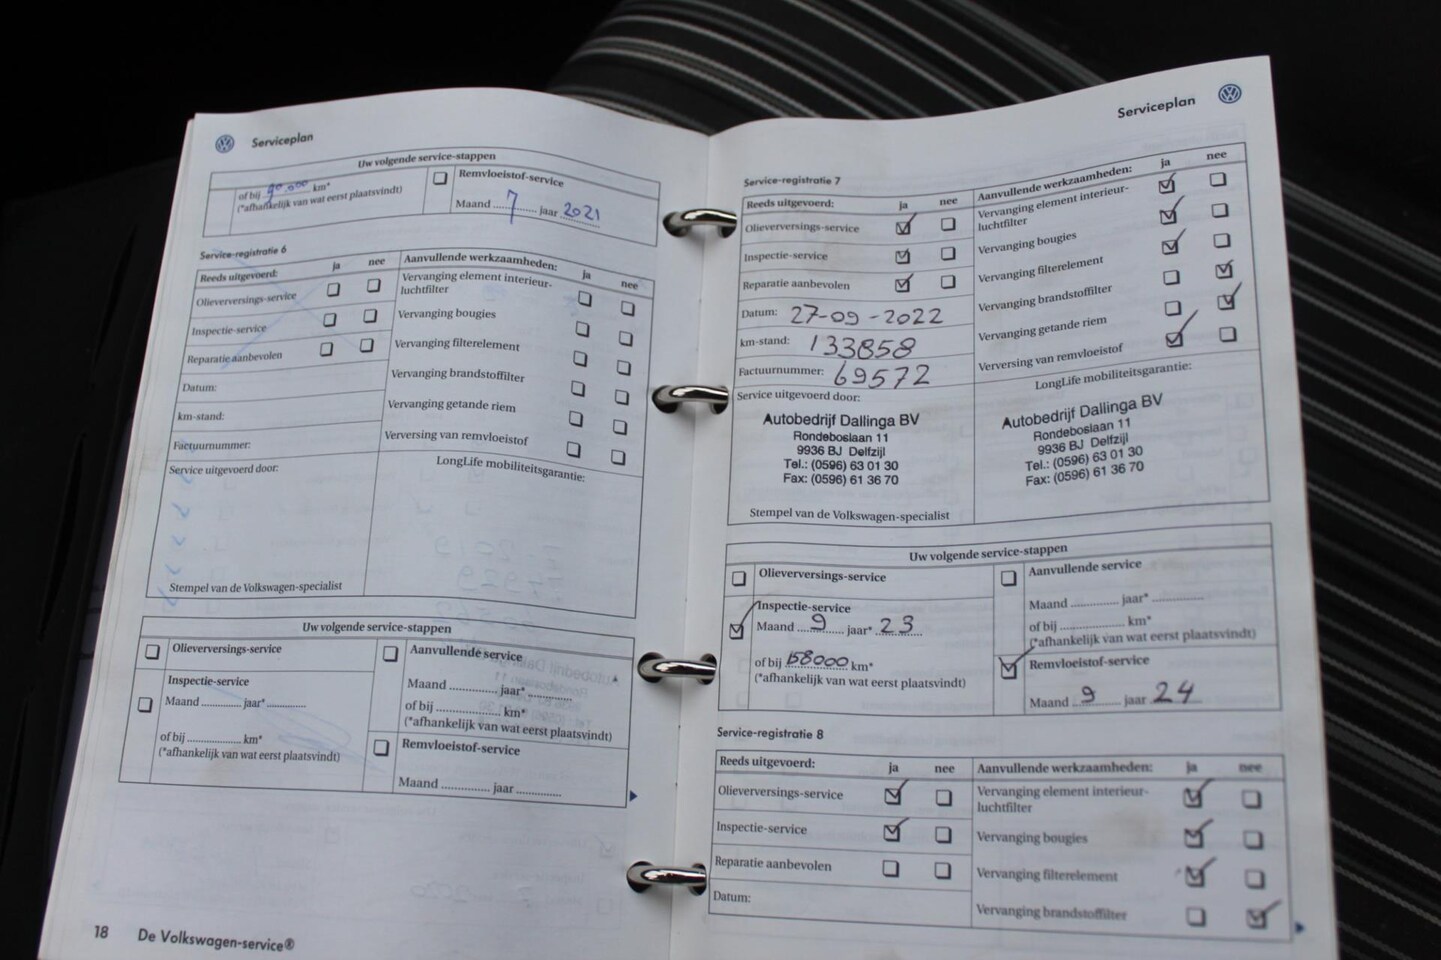 Serviceplan
Uw volgende service-stappen
of bij 90.000 km*
(*afhankelijk van wat eerst plaatsvindt)
Remvloeistof-service
Maand 7 jaar 2021
Service-registratie 6
Reeds uitgevoerd: ja nee
Olieverversings-service
Inspectie-service
Reparatie aanbevolen
Datum:
km-stand:
Factuurnummer:
Service uitgevoerd door:
Stempel van de Volkswagen-specialist
Aanvullende werkzaamheden: ja nee
Vervanging element interieur-
luchtfilter
Vervanging bougies
Vervanging filterelement
Vervanging brandstoffilter
Vervanging getande riem
Verversing van remvloeistof
LongLife mobiliteitsgarantie:
Uw volgende service-stappen
Olieverversings-service
Inspectie-service
Maand .............. jaar* ..............
of bij ................... km*
(*afhankelijk van wat eerst plaatsvindt)
Aanvullende service
Maand .............. jaar* ..............
of bij ................... km*
(*afhankelijk van wat eerst plaatsvindt)
Remvloeistof-service
Maand .............. jaar ..............
18 De Volkswagen-service®
Serviceplan
Service-registratie 7
Reeds uitgevoerd: ja nee
Olieverversings-service
Inspectie-service
Reparatie aanbevolen
Datum: 27-09-2022
km-stand: 133858
Factuurnummer: 69572
Service uitgevoerd door:
Autobedrijf Dallinga BV
Rondeboslaan 11
9936 BJ Delfzijl
Tel.: (0596) 63 01 30
Fax: (0596) 61 36 70
Stempel van de Volkswagen-specialist
Aanvullende werkzaamheden: ja nee
Vervanging element interieur-
luchtfilter
Vervanging bougies
Vervanging filterelement
Vervanging brandstoffilter
Vervanging getande riem
Verversing van remvloeistof
LongLife mobiliteitsgarantie:
Autobedrijf Dallinga BV
Rondeboslaan 11
9936 BJ Delfzijl
Tel.: (0596) 63 01 30
Fax: (0596) 61 36 70
Uw volgende service-stappen
Olieverversings-service
Inspectie-service
Maand 9 jaar* 23
of bij 158000 km*
(*afhankelijk van wat eerst plaatsvindt)
Aanvullende service
Maand .............. jaar* ..............
of bij ................... km*
(*afhankelijk van wat eerst plaatsvindt)
Remvloeistof-service
Maand 9 jaar 24
Service-registratie 8
Reeds uitgevoerd: ja nee
Olieverversings-service
Inspectie-service
Reparatie aanbevolen
Datum:
Aanvullende werkzaamheden: ja nee
Vervanging element interieur-
luchtfilter
Vervanging bougies
Vervanging filterelement
Vervanging brandstoffilter